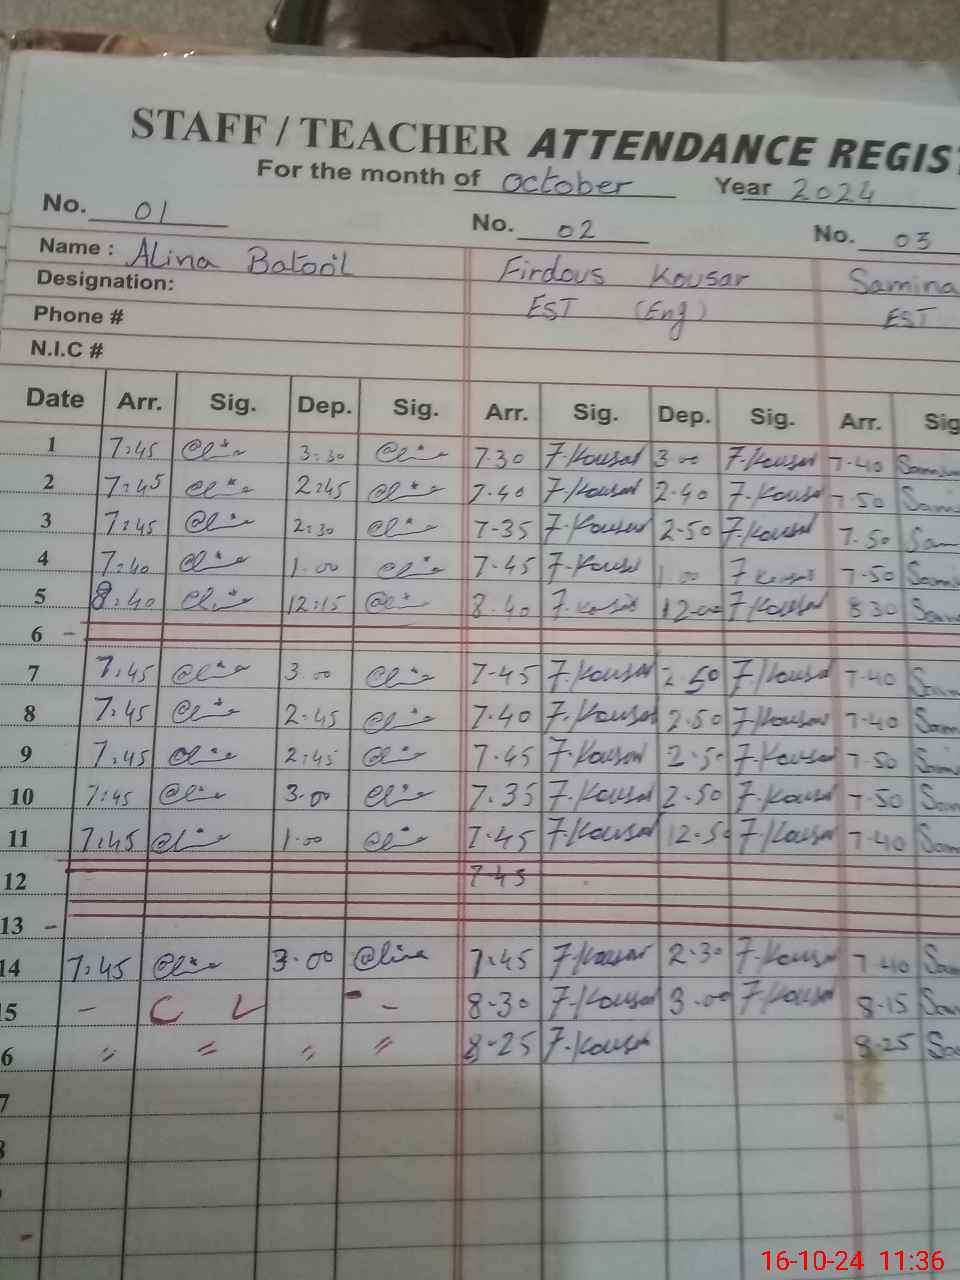 STAFF / TEACHER ATTENDANCE REGIS
For the month of October Year 2024
No. 01 No. 02 No. 03
Name : Alina Batool Firdous Kousar Samina
Designation: EST (Eng) EST
Phone #
N.I.C #
Date Arr. Sig. Dep. Sig. Arr. Sig. Dep. Sig. Arr. Sig
1 7:45 3:30 7.30 F.Kousar 3.00 F.Kousar 7.40
2 7:45 2:45 7.40 F.Kousar 2.40 F.Kousar 7.50
3 7:45 2:30 7-35 F.Kousar 2.50 F.Kousar 7.50
4 7:40 1.00 7.45 F.Kousar 1.00 F.Kousar 7.50
5 8:40 12:15 8.40 F.Kousar 12.00 F.Kousar 8.30
6 -
7 7:45 3.00 7-45 F.Kousar 2.50 F.Kousar 7-40
8 7:45 2:45 7.40 F.Kousar 2.50 F.Kousar 7.40
9 7:45 2:45 7.45 F.Kousar 2.50 F.Kousar 7.50
10 7:45 3.00 7.35 F.Kousar 2.50 F.Kousar 7.50
11 7:45 1.00 7.45 F.Kousar 12.5 F.Kousar 7.40
12 7-45
13 -
14 7:45 3.00 Alina 7.45 F.Kousar 2.30 F.Kousar 7.40
5 - C L - - 8-30 F.Kousar 3.00 F.Kousar 8.15
6 〃 〃 〃 〃 8-25 F.Kousar 8.25
7
8
16-10-24 11:36